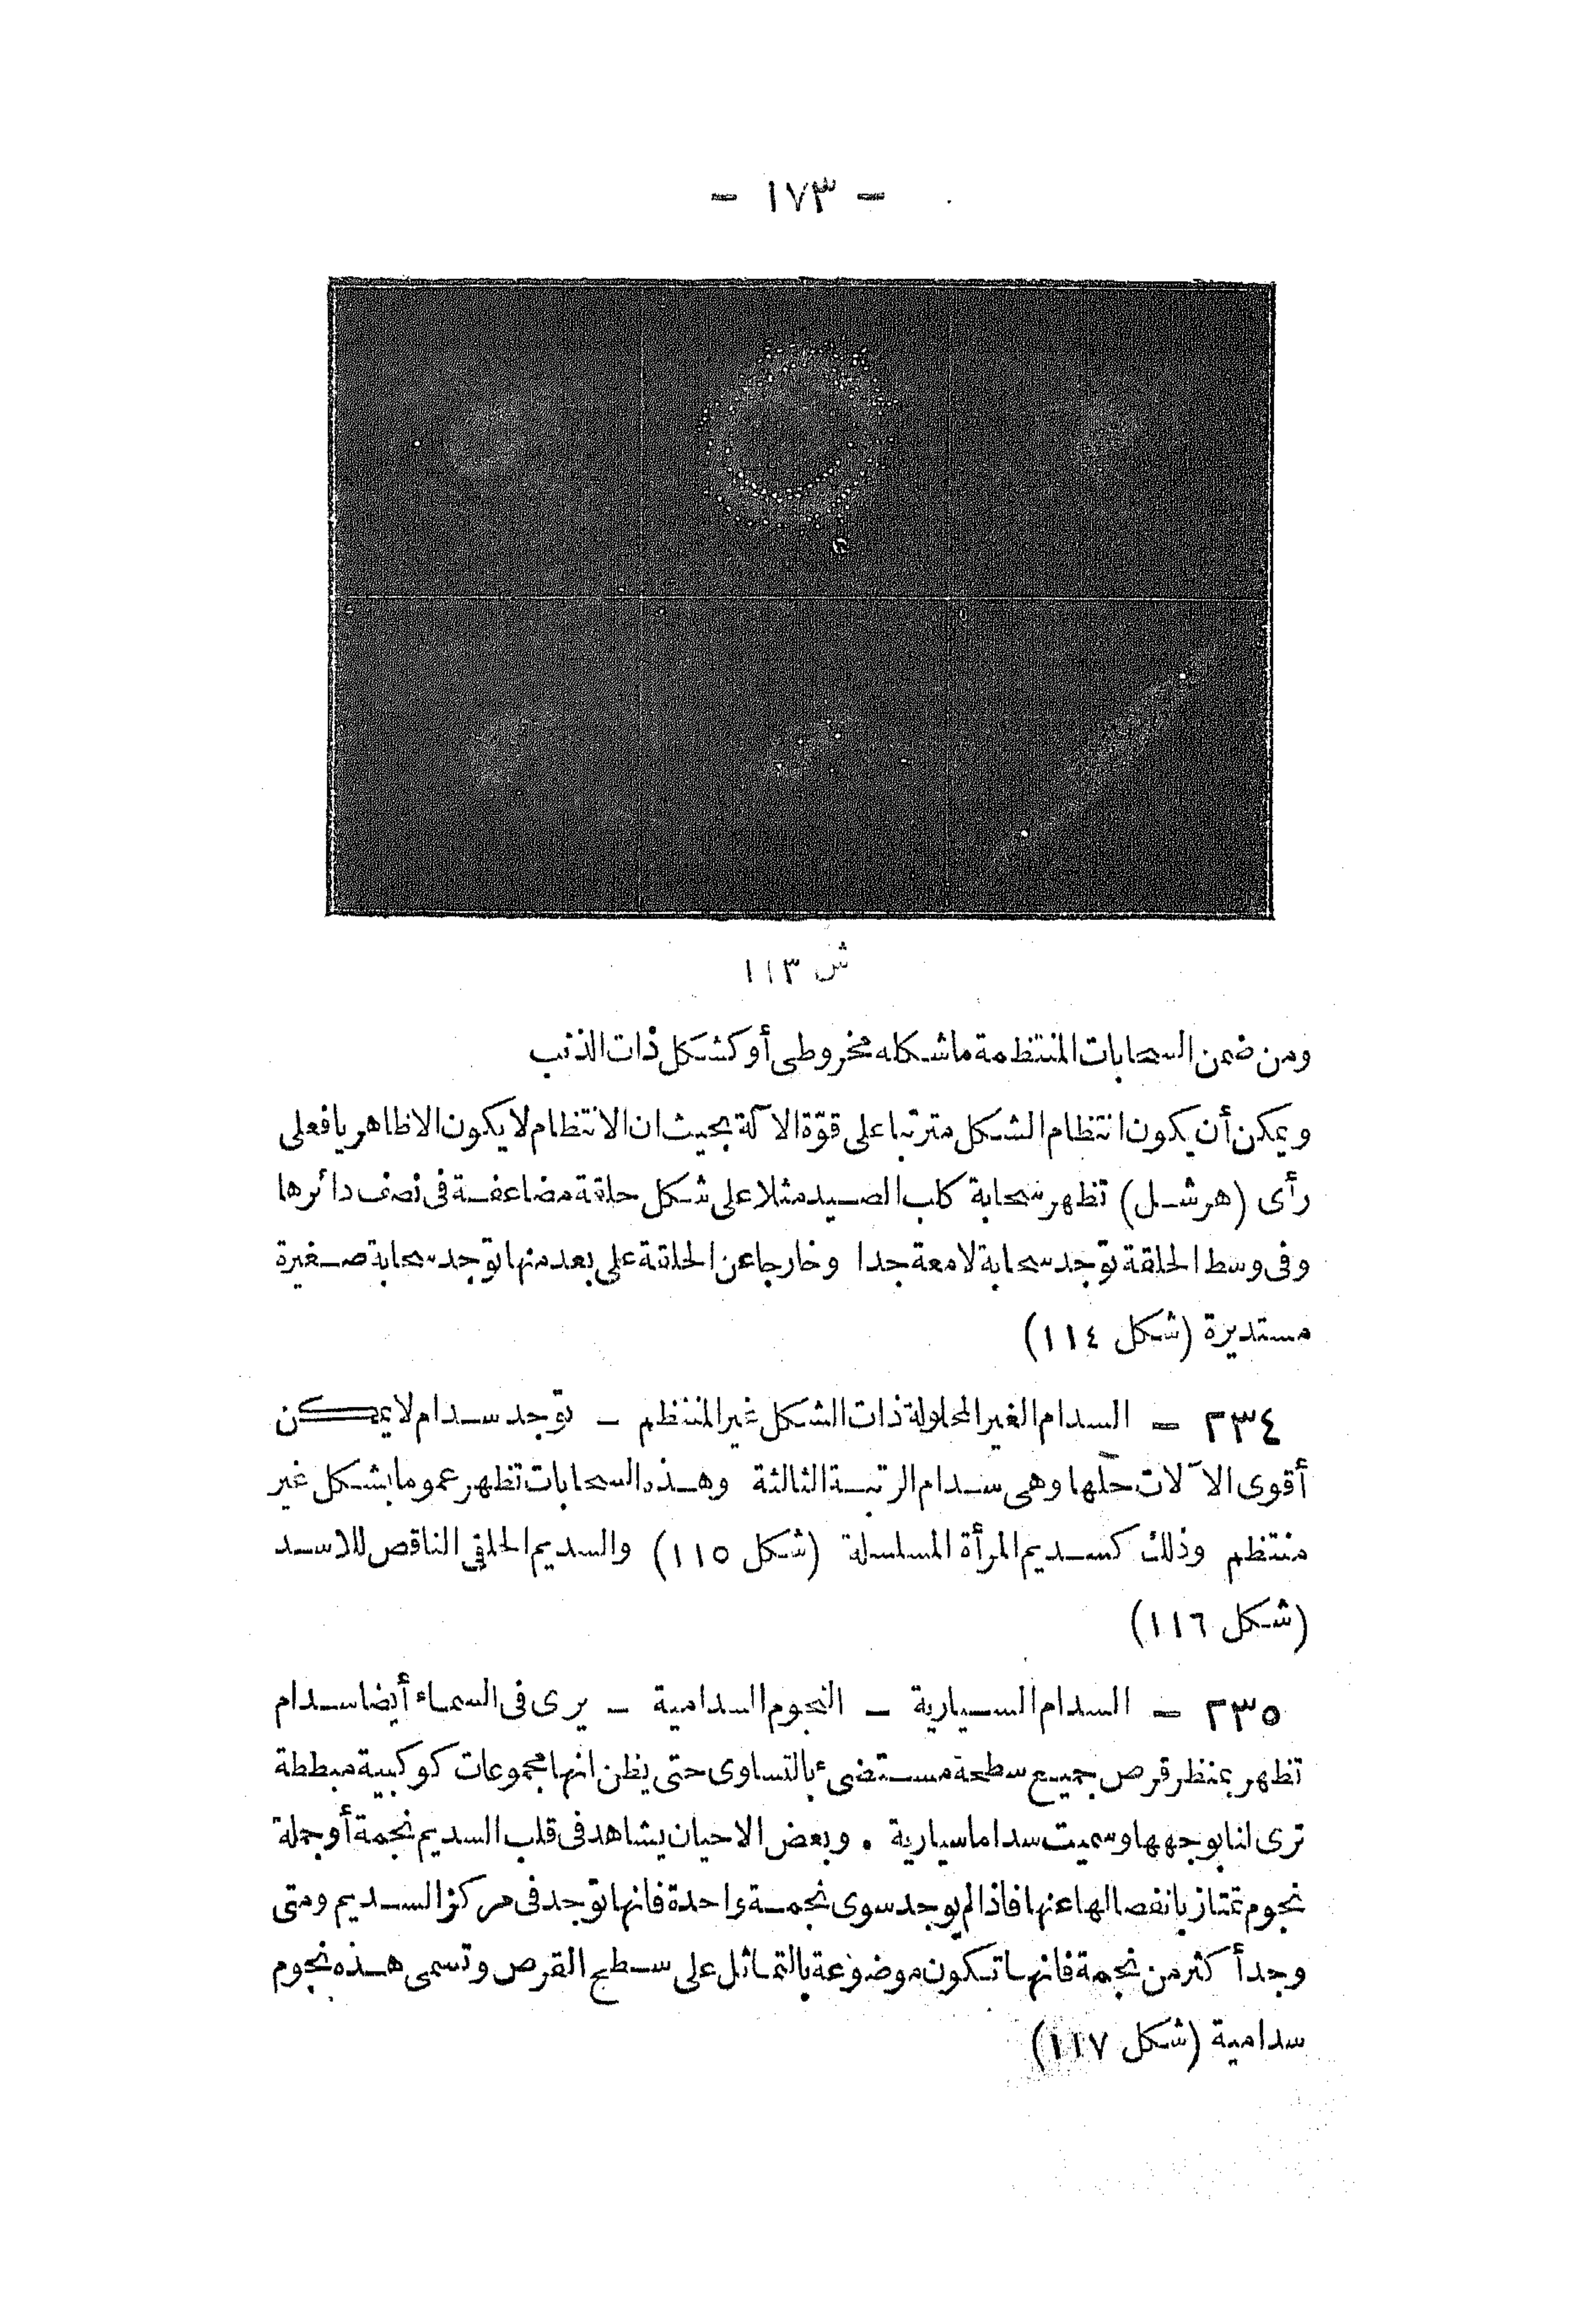 - ١٧٣ -
ش ١١٣
ومن ضمن السحابات المنتظمة ماشكله مخروطى أو كشكل ذات الذنب
ويمكن أن يكون انتظام الشكل مترتبا على قوّة الآلة بحيث ان الانتظام لا يكون الا ظاهريا فعلى
رأى (هرشل) تظهر سحابة كلب الصيد مثلا على شكل حلقة مضاعفة فى نصف دائرها
وفى وسط الحلقة توجد سحابة لامعة جدا وخارجا عن الحلقة على بعد منها توجد سحابة صغيرة
مستديرة (شكل ١١٤)
٢٣٤ - السدام الغير المحلولة ذات الشكل غير المنتظم - توجد سدام لا يمكن
أقوى الآلات حلها وهى سدام الرتبة الثالثة وهذه السحابات تظهر عموما بشكل غير
منتظم وذلك كسديم المرأة المسلسلة (شكل ١١٥) والسديم الحلقى الناقص للاسد
(شكل ١١٦)
٢٣٥ - السدام السيارية - النجوم السدامية - يرى فى السماء أيضا سدام
تظهر بمنظر قرص جميع سطحه مستضىء بالتساوى حتى يظن انها مجموعات كوكبية مبططة
ترى لنا بوجهها وسميت سداما سيارية . وبعض الاحيان يشاهد فى قلب السديم نجمة أو جملة
نجوم تمتاز بانفصالها عنها فاذا لم يوجد سوى نجمة واحدة فانها توجد فى مركز السديم ومتى
وجد أكثر من نجمة فانها تكون موضوعة بالتماثل على سطح القرص وتسمى هذه نجوم
سدامية (شكل ١١٧)